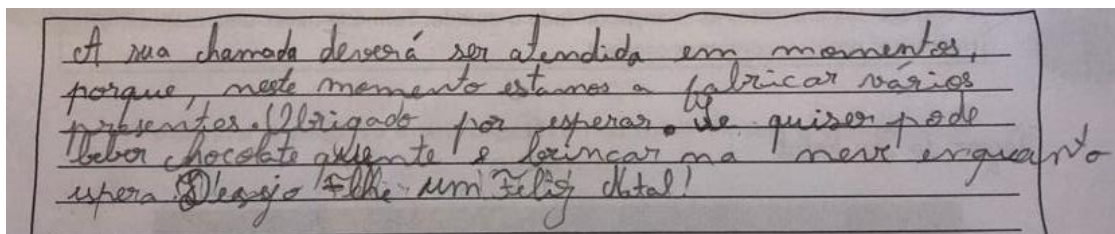 A sua chamada deverá ser atendida em momentos,
porque, neste momento estamos a fabricar vários
presentes. Obrigado por esperar. Se quiser pode
beber chocolate quente e brincar na neve enquanto
espera Desejo-lhe um Feliz Natal!